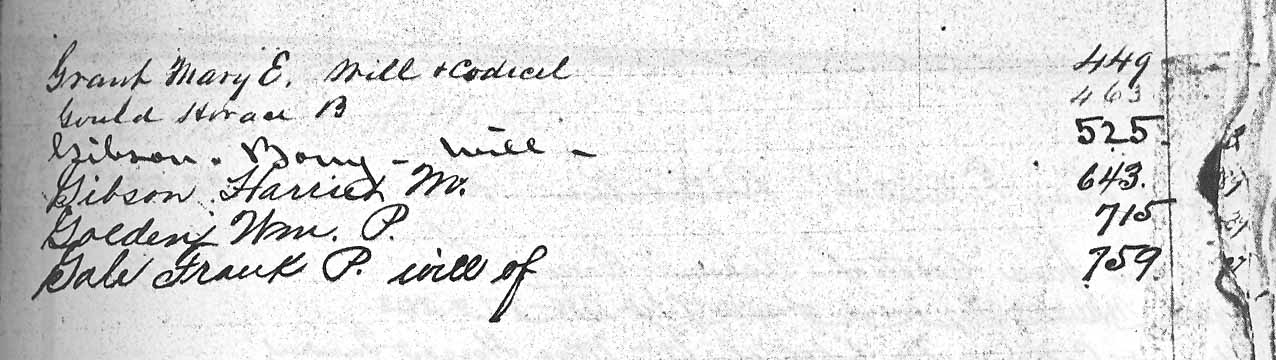 Grant Mary E. Will & Codicil 449
Gould Horace B 463
Gibson. Bony - Will - 525
Gibson Harriet M. 643.
Golden, Wm. P. 715
Gale Frank P. will of 759